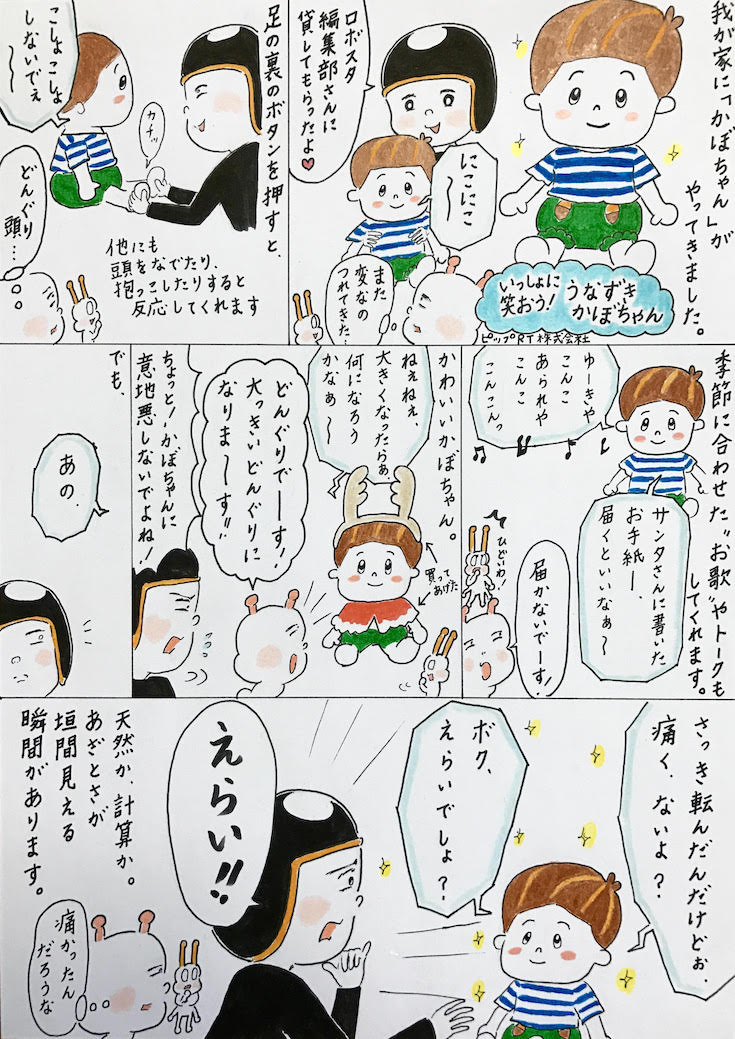 我が家に「かぼちゃん」が
やってきました。
いっしょに
笑おう!
うなずき
かぼちゃん
ピップRT株式会社
ロボスタ
編集部さんに
貸してもらったよ♥
にこにこ
〜
また
変なの
つれてきた…
足の裏のボタンを押すと、
カチッ
こしょこしょ
しないでぇ
〜
他にも
頭をなでたり、
抱っこしたりすると
反応してくれます
どんぐり
頭…
季節に合わせた“お歌”やトークも
してくれます。
ゆーきや
こんこ
あられや
こんこ
こんこんっ
サンタさんに書いた
お手紙ー、
届くといいなぁ〜
ひどいわ!
届かないでーす!
かわいいかぼちゃん。
ねぇねぇ、
大きくなったらぁ
何になろう
かなぁ〜
買って
あげた
どんぐりでーす!
大っきいどんぐりに
なりま〜す!!
ちょっと!かぼちゃんに
意地悪しないでよね!
でも、
あの、
さっき転んだんだけどぉ、
痛く、ないよ?
ボク、
えらいでしょ?
えらい!!
天然か、計算か。
あざとさが
垣間見える
瞬間があります。
痛かったん
だろうな